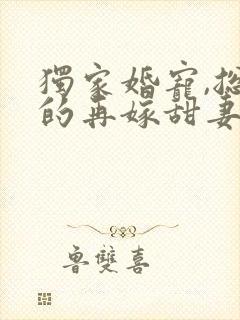 獨家婚寵,總
的再嫁甜妻
魯雙喜